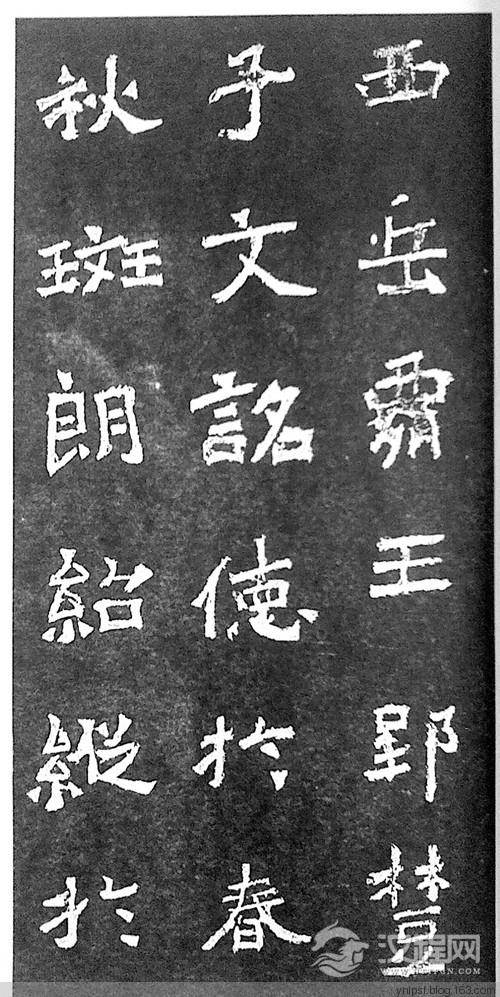 西岳霸王郢楚
子文詺德於春
秋斑朗紹縱於
汉程网
ynlpsf.blog.163.com